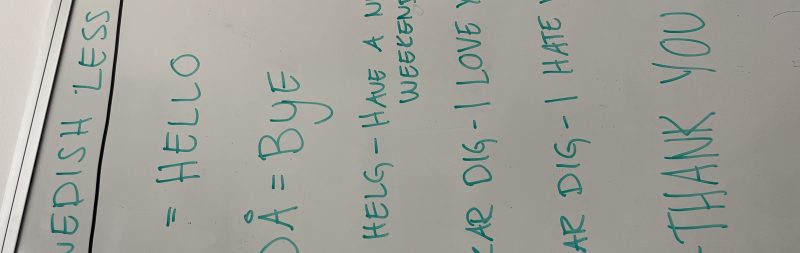 EDISH LESS
= HELLO
DÅ = BYE
HELG - HAVE A N
WEEKEN
AR DIG - I LOVE Y
AR DIG - I HATE
- THANK YOU